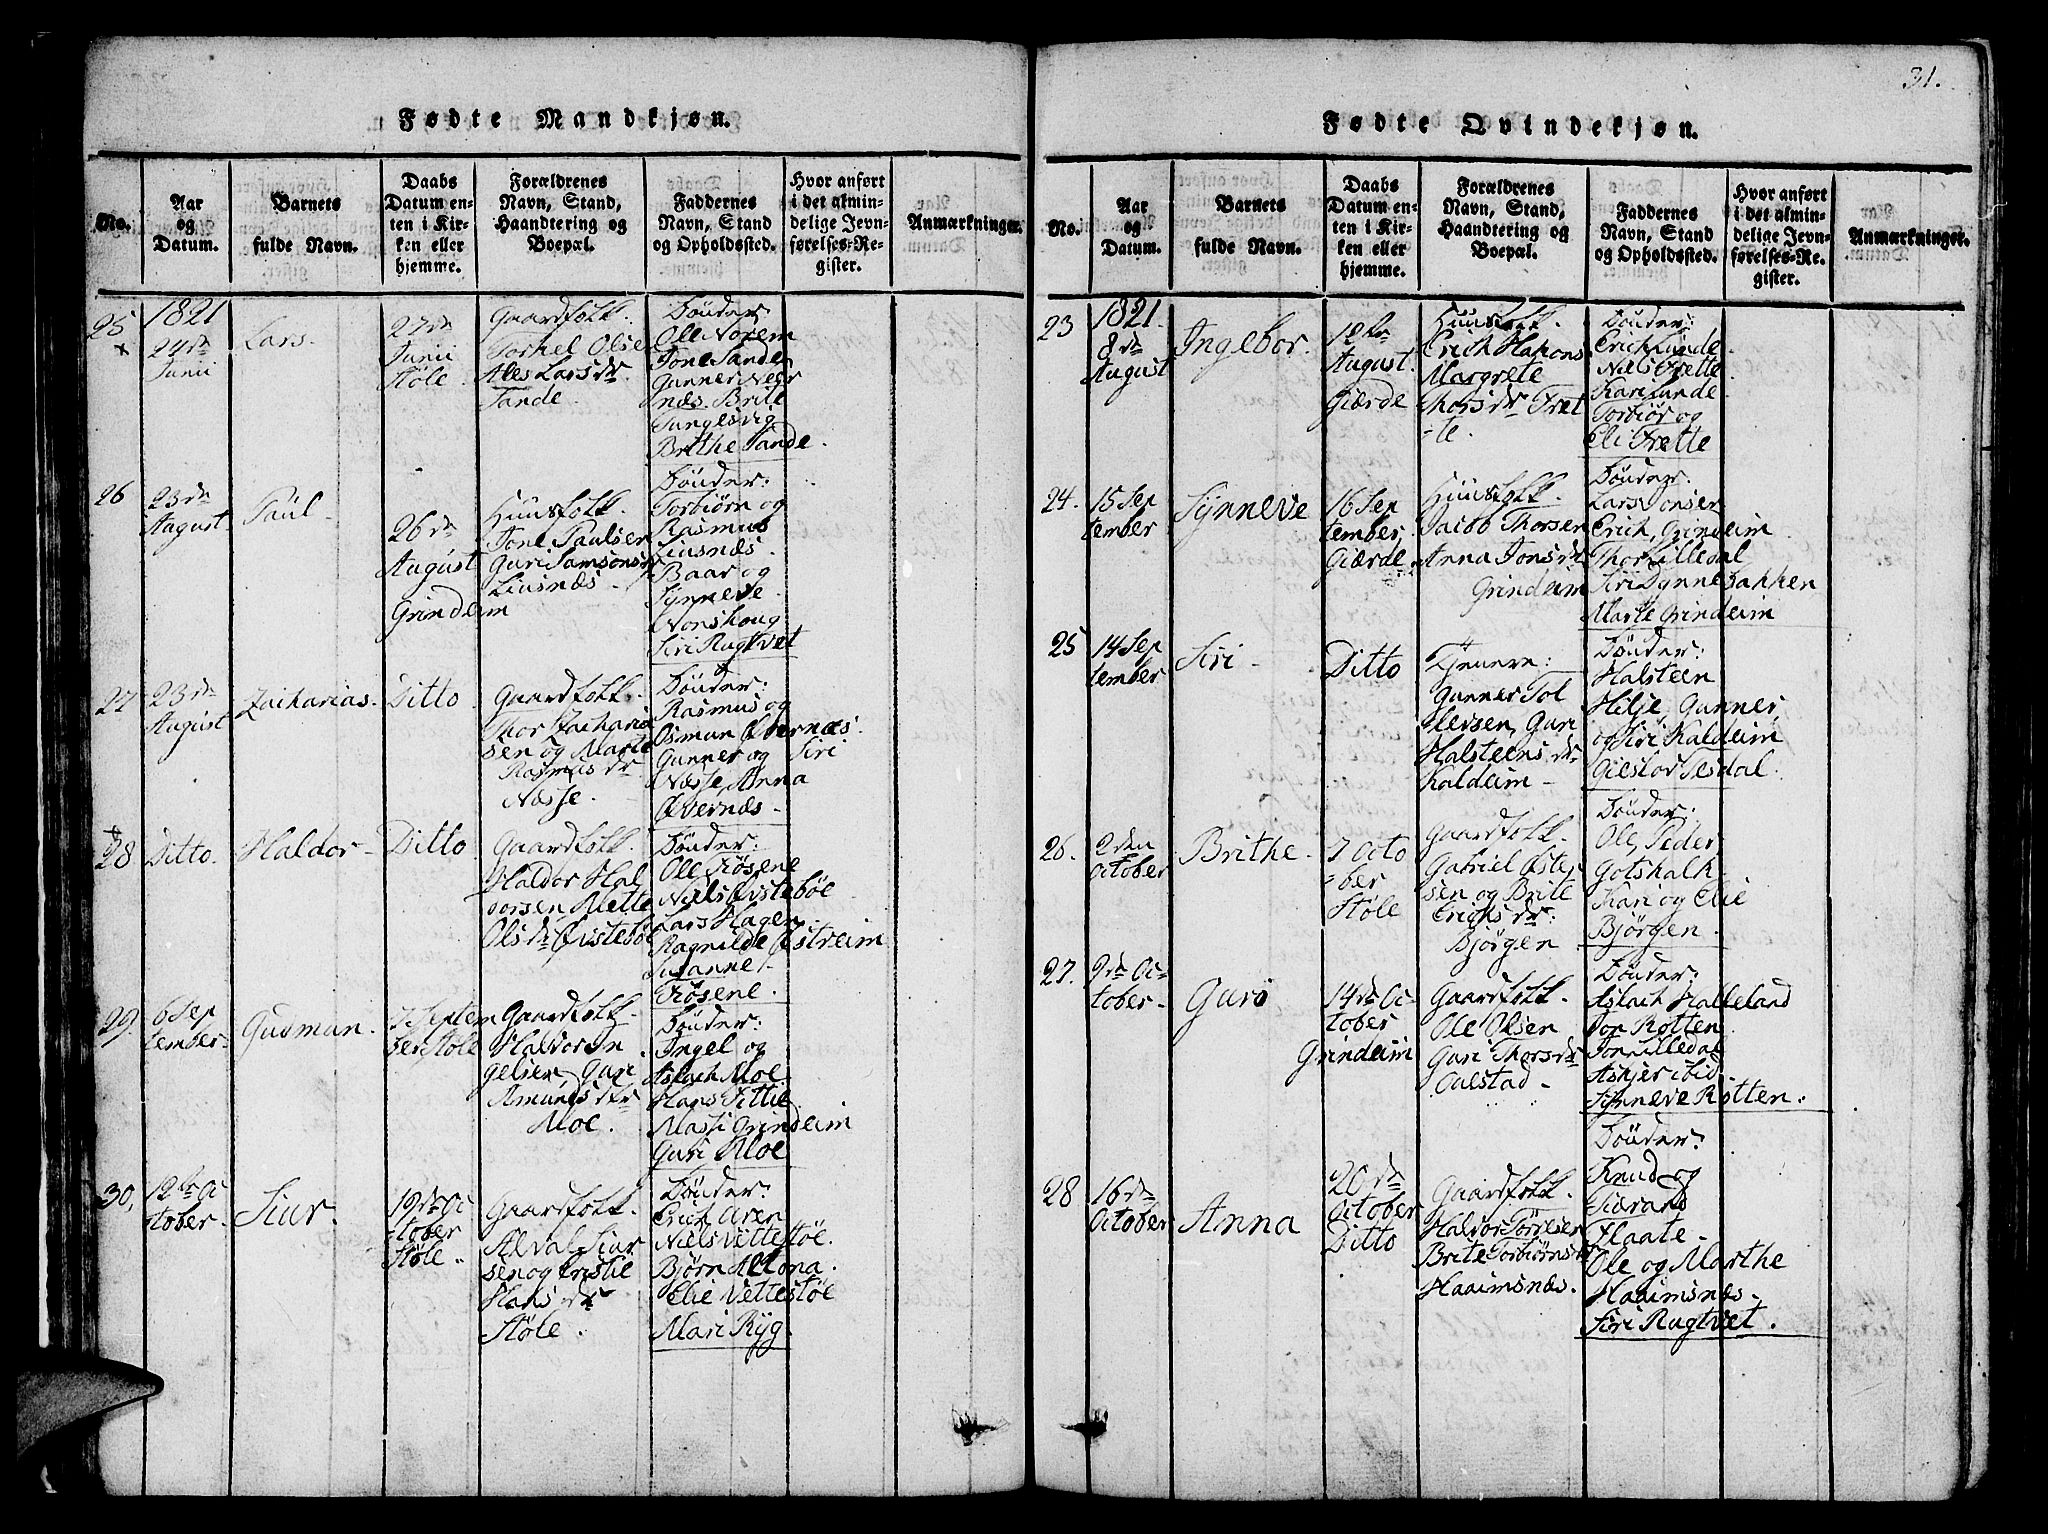 31.
Fødte Mandkjøn.
No.
Aar
og
Datum.
Barnets
fulde Navn.
Daabs
Datum en-
ten i Kir-
ken eller
hjemme.
Forældrenes
Navn, Stand,
Haandtering og
Boepæl.
Faddernes
Navn, Stand
og Opholdssted.
Hvor anført
i det almin-
delige Jevn-
førelses-Re-
gister.
Anmærkninger.
25
1821
24de
Junii
Lars.
27de
Junii
Støle.
Gaardfolk.
Torkel Olse
Ales Larsdr
Sande.
Bönder:
Ole Norem
Jone Sande
Gunner Nær
næs. Brite
Tungesvig
Brithe Sande.
26
23de
August
Paul.
26de
August
Grindeim
Huusfolk.
Jone Paulsen
Guri Samsonsdr
Liusnæs.
Bönder:
Torbiørn og
Rasmus
Liusnæs.
Baar og
Synneve
Norshoug
Siri Rugtvet
27
23de
August
Zacharias.
Ditto.
Gaardfolk.
Thor Zacharia
sen og Marte
Rasmusdr
Næsse.
Bönder:
Rasmus og
Osmun Øvernæs.
Gunner og Siri
Næsse, Anna
Øvernæs.
28
Ditto.
Haldor
Ditto
Gaardfolk.
Haldor Hal
dorsen, Mette
Olsdr Østebø
Bönder:
Ole Frøsene
Niels Østebøe
Lars Hagen
Ragnilde Østreim
Susanne
Frøsene.
29.
6 Sep
tember.
Gusman.
7 Septem
ber Støle
Gaardfolk.
Haldor In
gelsen, Guri
Amundsdr
Moe.
Bönder:
Ingel og
Aslach Moe
Hans Vittie
Massi Grindeim
Guri Moe
30.
12te Oc
tober.
Siur.
19de Oc
tober
Støle.
Gaardfolk.
Alval Siur
sen og Cristie
Hansdr
Støle.
Bönder:
Erich Aren
Niels Vettestøe.
Bjørn Altona.
Elie Vettestøe
Mari Ryg.
Fødte Qvindekjøn.
No.
Aar
og
Datum.
Barnets
fulde Navn.
Daabs
Datum en-
ten i Kir-
ken eller
hjemme.
Forældrenes
Navn, Stand,
Haandtering og
Boepæl.
Faddernes
Navn, Stand
og Opholdssted.
Hvor anført
i det almin-
delige Jevn-
førelses-Re-
gister.
Anmærkninger.
23
1821.
8de
August
Ingebor.
12te
August.
Giærde
Huusfolk.
Erich Hakons
Margrete
Thorsdr Fret
-te.
Bönder:
Erich Lunde
Niels Frette
Kari Lunde
Torbiør og
Eli Frette
24.
15 Sep
tember
Synneve
16 Sep
tember,
Giærde.
Huusfolk.
Jacob Thorsen
Anna Jonsdr
Grindeim
Bönder.
Lars Jonser
Erich, Grindeim.
Thor Lilledal
Siri Dynnebakken
Marte Grindeim
25
14 Sep
tember
Siri
Ditto
Tjenere:
Gunner Tol
levsen, Guri
Halsteensdr
Kaldeim
Bönder:
Halsteen
Hilje, Gunner,
og Siri Kaldeim
Giestor Sesdal.
26.
2den
October
Brithe.
7 Octo
-ber
Støle
Gaardfolk.
Gabriel Øste
sen og Brite
Erichsdr:
Bjørgen
Bönder:
Ole, Peder
Gotshalk
Kari og Elie
Bjørgen.
27.
9de Oc-
tober.
Guro
14de Oc
tober
Grindeim
Gaardfolk.
Ole Olsen
Guri Thorsdr
Oalestad.
Bönder:
Aslach Halleland
Jon Rotten
Jon Lilledal
Askjer ibid.
Synneve Rotten.
28
16de
October
Anna
20de
October
Ditto
Gaardfolk.
Haldor Tørresen
Brite Torbiørnsdr
Haaimsnæs.
Bönder:
Knud og
Siovand
Flaate.
Ole og Marthe
Haaimsnæs.
Siri Rugtvet.